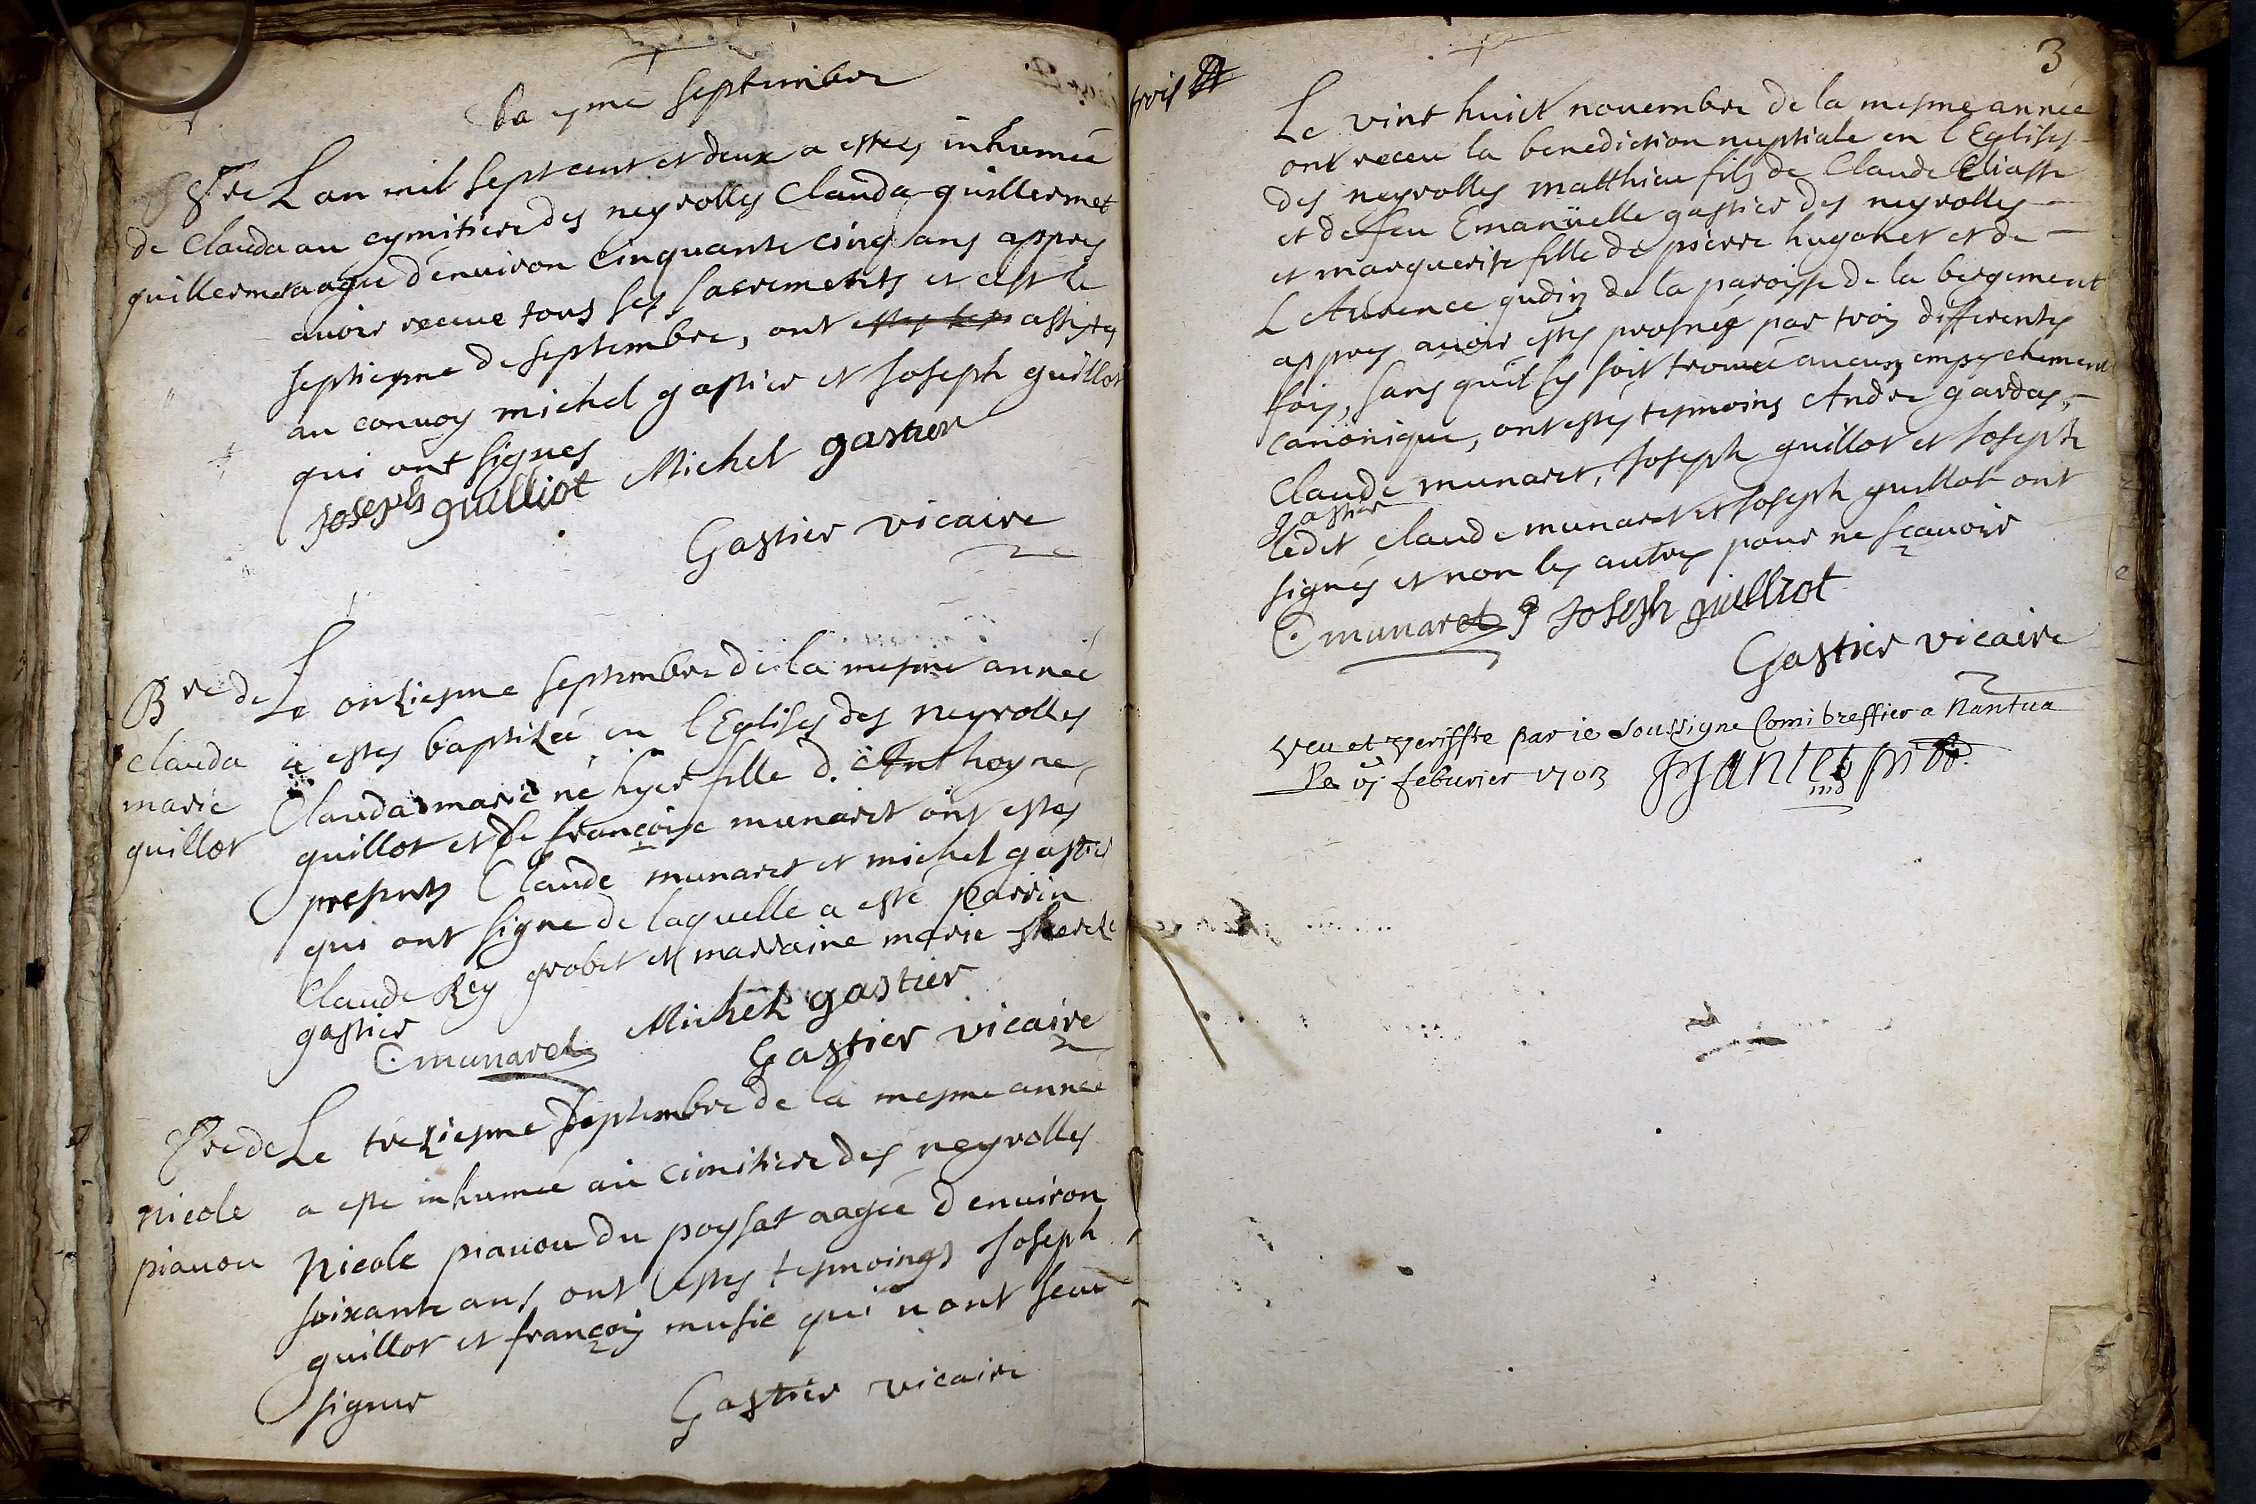 septembre
Sre L an mil sept cent et deux a estes inhumée
de Clauda au cymitiere des neyrolles Clauda guillermet
guillermet aagée d'enuiron Cinquante cinq ans appres
auoir receue tous ses sacrements et c'est le
septiesme de septembre, ont assistes
au conuoy michel gastier et Joseph guillot
qui ont signes
Joseph guilliot Michel gastier
Gastier vicaire
Bre de Le onziesme septembre de la mesme année
clauda a estes baptizée en l'Eglises des neyrolles
marie Clauda marie né hyer fille d. Anthoyne
guillot guillot et de françoise munaret ont estés
presents Claude munaret et michel gastier
qui ont signe de laquelle a esté parrin
Claude Rey grobet et marraine marie
gastier
C munaret Michel gastier
Gastier vicaire
Sre de Le treziesme septembre de la mesme année
nicole a este inhumée au cimitiere des neyrolles
piauou Nicole piauou du poysat aagée d'enuiron
soixante ans, ont estes tesmoings Joseph
guillot et françois musie qui n ont sceu
signer
Gastier vicaire
trois
3
Le vint huict nouembre de la mesme année
ont receu la benediction nuptiale en l'Eglises
des neyrolles matthieu fils de Claude Eliasse
et de feu Emanüelle gastier des neyrolles
et marguerite fille de pierre hugonet et de
Laurence gudin de la paroisse de la bergement
appres auoir estes prosnés par trois differentes
fois, sans qu'il sy soit trouué aucun empeschement
canonique, ont estes tesmoins Andre gardas,
Claude munaret, Joseph guillot et Joseph
gastier
ledit Claude munaret et Joseph guillot ont
signés et non les autres pour ne sçauoir
C munaret J Joseph guilliot
Gastier vicaire
Veu et veriffie par ie soussigne Comi breffier a Nantua
Le feburier 1703